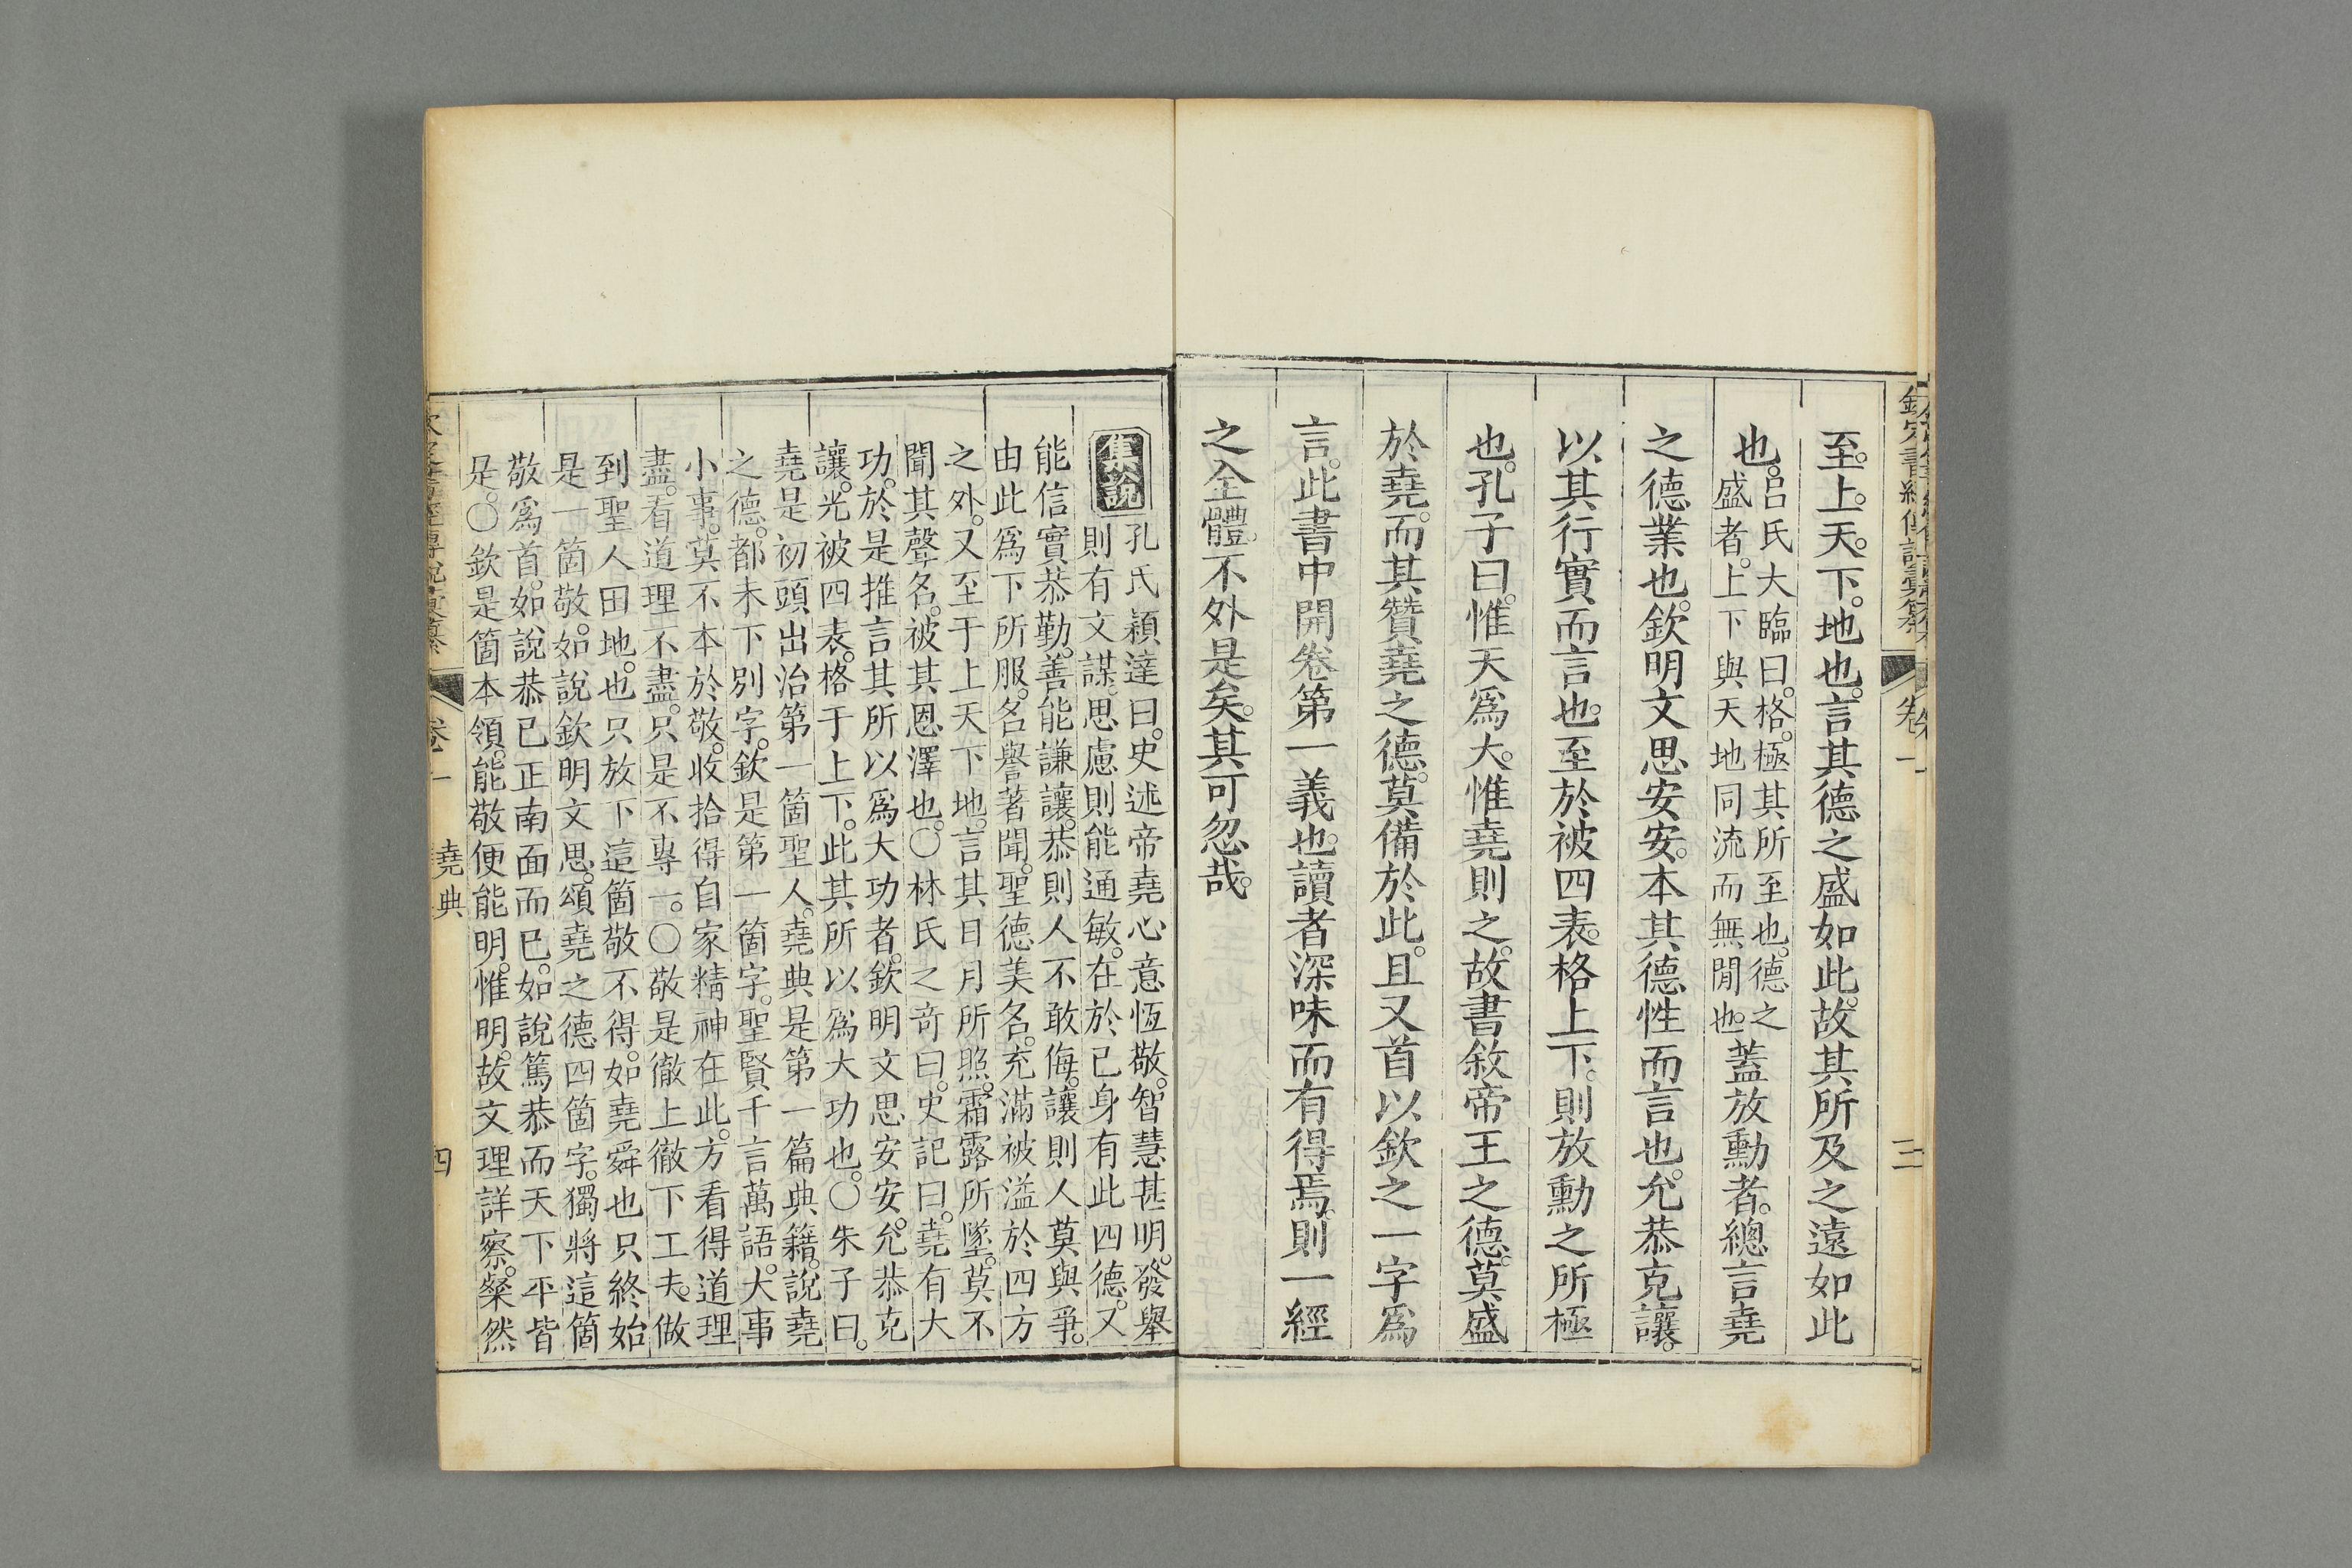 欽定書經傳說彙纂 卷一 三
至。上。天。下。地也。言其德之盛如此。故其所及之遠如此
也。呂氏大臨曰。格。極其所至也。德之
盛者。上下與天地同流而無閒也。蓋放勳者。總言堯
之德業也。欽明文思安安。本其德性而言也。允恭克讓。
以其行實而言也。至於被四表。格上下。則放勳之所極
也。孔子曰。惟天爲大。惟堯則之。故書敘帝王之德。莫盛
於堯。而其贊堯之德。莫備於此。且又首以欽之一字爲
言。此書中開卷第一義也。讀者深味而有得焉。則一經
之全體。不外是矣。其可忽哉。
集說 孔氏穎達曰。史述帝堯心意恆敬。智慧甚明。發舉
則有文謀。思慮則能通敏。在於已身有此四德。又
能信實恭勤。善能謙讓。恭則人不敢侮。讓則人莫與爭。
由此爲下所服。名譽著聞。聖德美名。充滿被溢於四方
之外。又至于上天下地。言其日月所照。霜露所墜。莫不
聞其聲名。被其恩澤也。○林氏之竒曰。史記曰。堯有大
功。於是推言其所以爲大功者。欽明文思安安。允恭克
讓。光被四表。格于上下。此其所以爲大功也。○朱子曰。
堯是初頭出治第一箇聖人。堯典是第一篇典籍。說堯
之德。都未下別字。欽是第一箇字。聖賢千言萬語。大事
小事。莫不本於敬。收拾得自家精神在此。方看得道理
盡。看道理不盡。只是不專一。○敬是徹上徹下工夫。做
到聖人田地。也只放下這箇敬不得。如堯舜也只終始
是一箇敬。如說欽明文思。頌堯之德四箇字。獨將這箇
敬爲首。如說恭已正南面而已。如說篤恭而天下平皆
是。○欽是箇本領。能敬便能明。惟明。故文理詳察。粲然
卷一 堯典 四